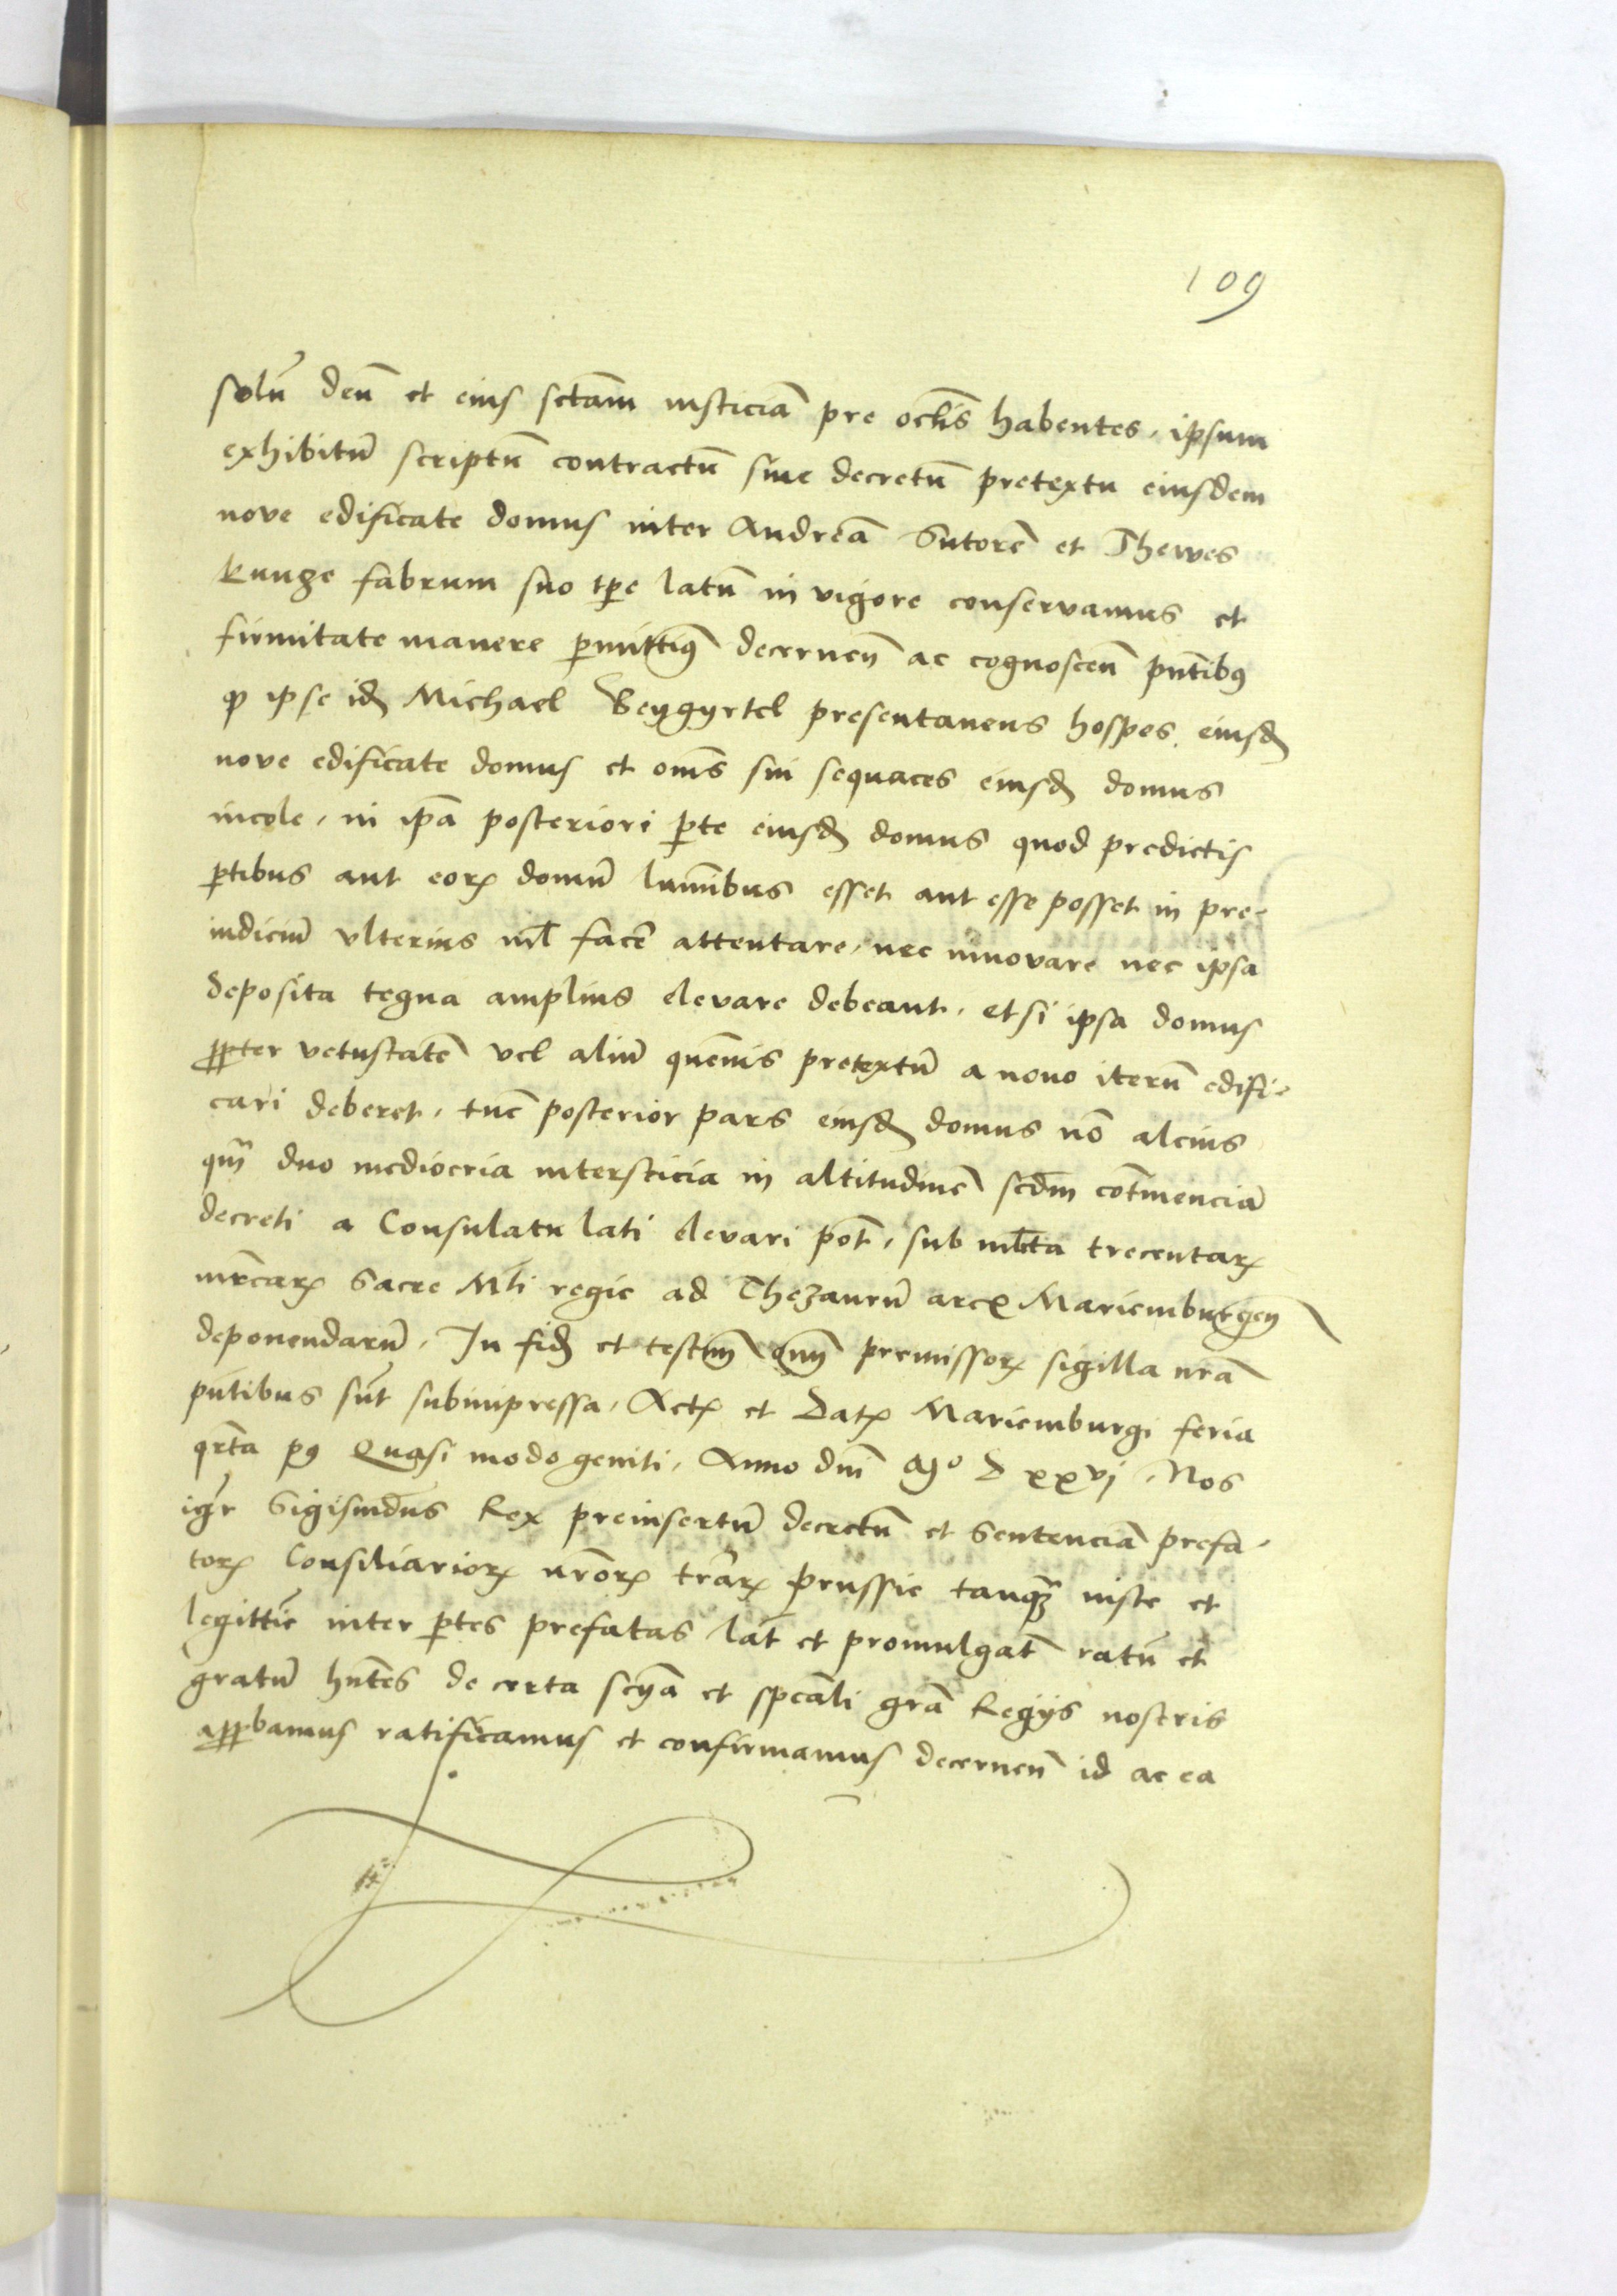 109
solū deū et eius sctam iusticiā pre oclis habentes, ipsum
exhibitū scriptū contractū siue decretū pretextu eiusdem
nove edificate domus inter Andreā Sutorē et Thewes
Kunze fabrum suo tpe latū in vigore conservamus et
firmitate manere pmittimꝰ decernen̄ ac cognoscen̄ pn̄tibꝰ
ꝙ ipse idꝫ Michael Beygyrtel presentaneus hospes eiusdꝫ
nove edificate domus et om̄s sui sequaces eiusdꝫ domus
incole, in ipā posteriori pte eiusdꝫ domus quod predictis
ptibus aut eoꝝ domū luminibus esset aut esse posset in pre-
iudiciū vlterius nil facē attentare, nec innovare nec ipsa
deposita tegna amplius elevare debeant, et si ipsa domus
ꝓpter vetustatē vel aliū quēuis pretextū a novo iterū edifi-
cari deberet, tūc posterior pars eiusdꝫ domus nō alcius
qm̄ duo mediocria intersticia in altitudinē scdm cōtinenciā
decreti a Consulatu lati elevari pōt, sub mlcta trecentaꝝ
mrcaꝝ Sacre Mti regie ad Thezaurū arcꝭ Mariemburgen̄
deponendarū. In fidꝫ et testim̄ qm̄ premissoꝝ sigilla nrā
pn̄tibus sūt subimpressa, Actꝝ et Datꝝ Mariemburgi feria
qrta pꝰ Quasi modo geniti, Anno dni Mº D xxvj. Nos
igr̄ Sigismdus Rex preinsertū decretū et Sentenciā prefa-
toꝝ Consiliarioꝝ nrōꝝ trāꝝ prussie tanqꝫ iuste et
legittīe inter ptes prefatas lat̄ et promulgat̄ ratū et
gratū hn̄tes de certa scyā et spēali grā Regijs nostris
apꝓbamus ratificamus et confirmamus decernen̄ id ac ea